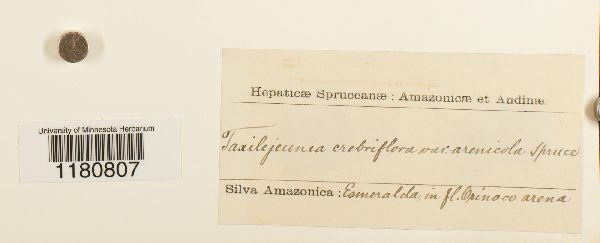 Hepaticæ Spruceanæ : Amazonicæ et Andinæ
University of Minnesota Herbarium
1180807
Taxilejeunia crebriflora var. arenicola Spruce
Silva Amazonica : Esmeralda, in fl. Orinoco arena